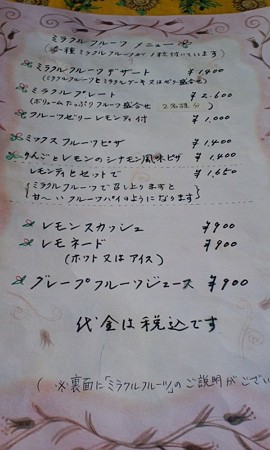 ミラクルフルーツ メニュー
(各種ミラクルフルーツが1粒付いています)
ミラクルフルーツ デザート ¥1,400
(ミラクルフルーツとミラクルケーキ又はゼリー盛合せ)
ミラクル プレート ¥2,600
(ボリュームたっぷりフルーツ盛合せ 2名様分)
フルーツゼリー レモンティ付 ¥1,000
ミックスフルーツピザ ¥1,400
りんごとレモンのシナモン風味ピザ ¥1,400
レモンティとセットで ¥1,650
(ミラクルフルーツで召し上りますと
甘〜いフルーツパイのようになります)
レモンスカッシュ ¥900
レモネード ¥900
(ホット又はアイス)
グレープフルーツジュース ¥900
代金は税込です
(※裏面に「ミラクルフルーツ」のご説明がござい